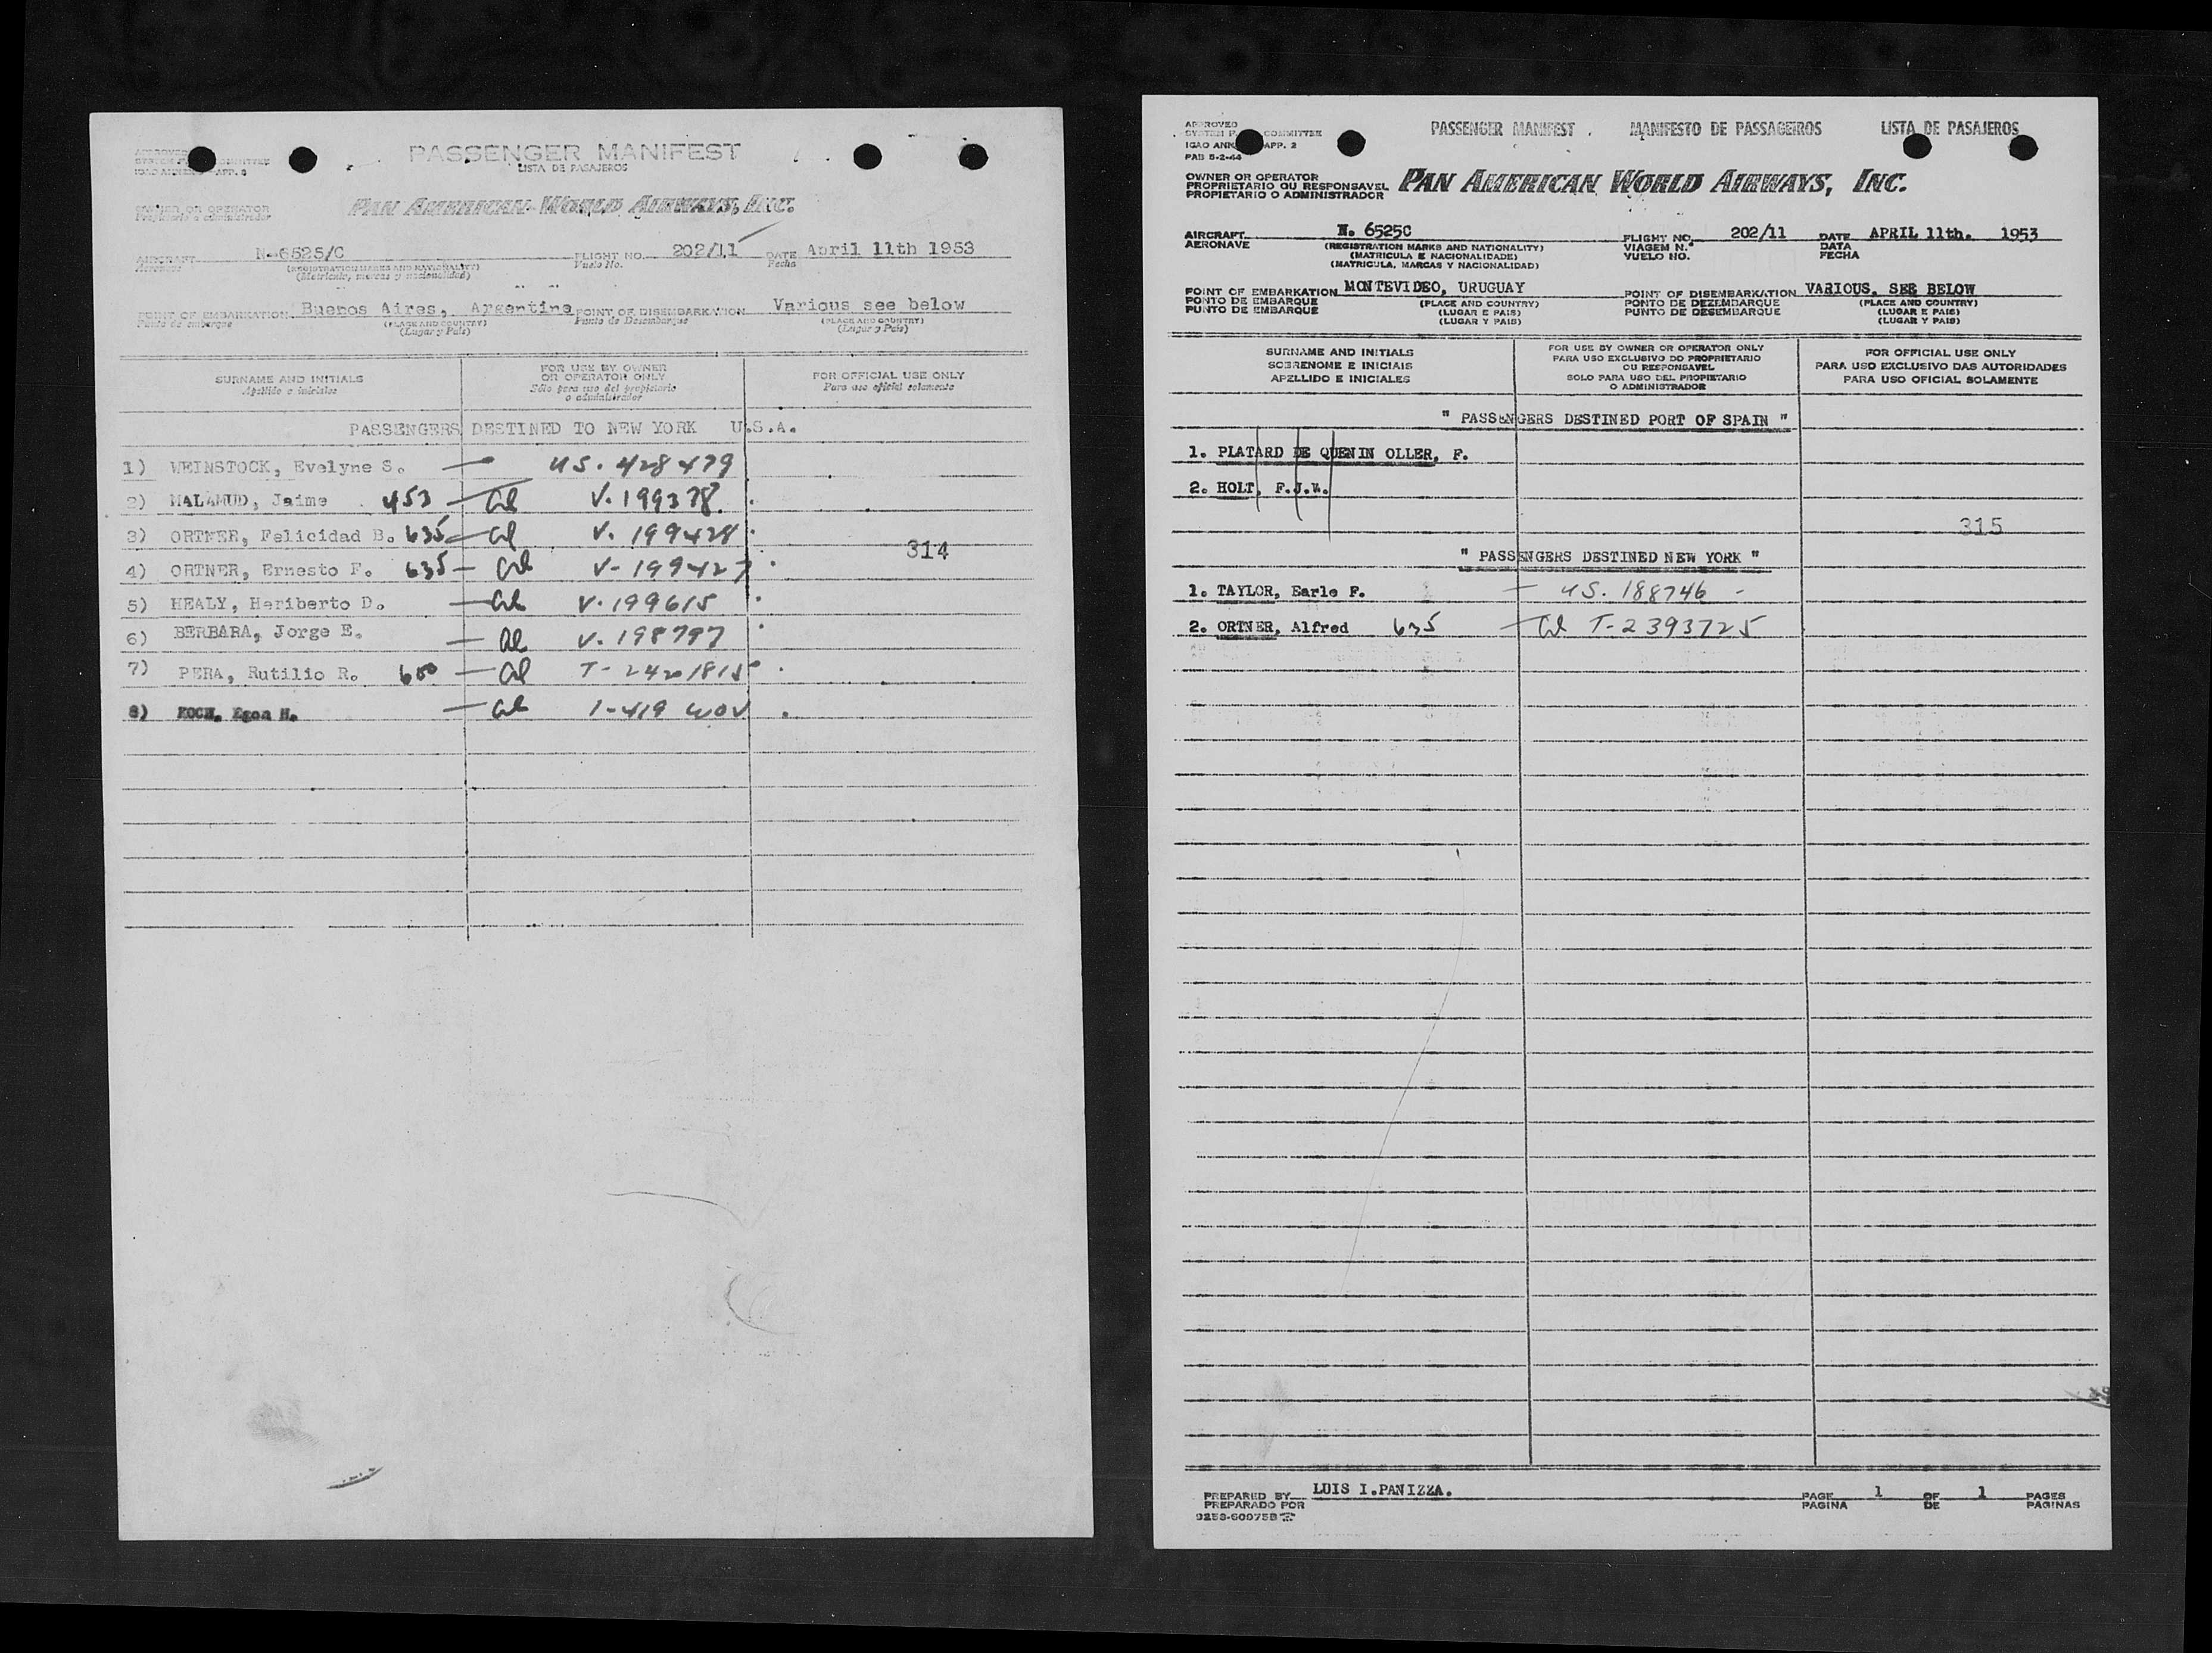 PASSENGER MANIFEST
LISTA DE PASAJEROS
OWNER OR OPERATOR
Propietario o administrador
PAN AMERICAN WORLD AIRWAYS, INC.
AIRCRAFT N-6525/C FLIGHT NO. 202/11 DATE April 11th 1953
Aeronave (REGISTRATION MARKS AND NATIONALITY) Vuelo No. Fecha
(Matricula, marcas y nacionalidad)
POINT OF EMBARKATION Buenos Aires, Argentine POINT OF DISEMBARKATION Various see below
Punto de embarque (PLACE AND COUNTRY) Punto de Desembarque (PLACE AND COUNTRY)
(Lugar y País) (Lugar y País)
SURNAME AND INITIALS FOR USE BY OWNER OR OPERATOR ONLY FOR OFFICIAL USE ONLY
Apellido e iniciales Sólo para uso del propietario o administrador Para uso oficial solamente
PASSENGERS DESTINED TO NEW YORK U.S.A.
1) WEINSTOCK, Evelyne S. — US. 428479
2) MALAMUD, Jaime 453 — V. 199378.
3) ORTNER, Felicidad B. 635 — V. 199428
314
4) ORTNER, Ernesto F. 635 — V- 199427
5) HEALY, Heriberto D. — V. 199615
6) BERBARA, Jorge E. — V. 198797
7) PERA, Rutilio R. 600 — T-
8) KOCH, Egon H. —
APPROVED
SYSTEM COMMITTEE
ICAO ANN. APP. 2
PAB 5-2-44
PASSENGER MANIFEST MANIFESTO DE PASSAGEIROS LISTA DE PASAJEROS
OWNER OR OPERATOR
PROPRIETARIO OU RESPONSAVEL
PROPIETARIO O ADMINISTRADOR
PAN AMERICAN WORLD AIRWAYS, INC.
AIRCRAFT N. 6525C FLIGHT NO. 202/11 DATE APRIL 11th. 1953
AERONAVE (REGISTRATION MARKS AND NATIONALITY) VIAGEM N.º DATA
(MATRICULA E NACIONALIDADE) VUELO NO. FECHA
(MATRICULA, MARCAS Y NACIONALIDAD)
POINT OF EMBARKATION MONTEVIDEO, URUGUAY POINT OF DISEMBARKATION VARIOUS. SEE BELOW
PONTO DE EMBARQUE (PLACE AND COUNTRY) PONTO DE DEZEMBARQUE (PLACE AND COUNTRY)
PUNTO DE EMBARQUE (LUGAR E PAIS) PUNTO DE DESEMBARQUE (LUGAR E PAIS)
(LUGAR Y PAIS) (LUGAR Y PAIS)
SURNAME AND INITIALS
SOBRENOME E INICIAIS
APELLIDO E INICIALES
FOR USE BY OWNER OR OPERATOR ONLY
PARA USO EXCLUSIVO DO PROPRIETARIO
OU RESPONSAVEL
SOLO PARA USO DEL PROPIETARIO
O ADMINISTRADOR
FOR OFFICIAL USE ONLY
PARA USO EXCLUSIVO DAS AUTORIDADES
PARA USO OFICIAL SOLAMENTE
" PASSENGERS DESTINED PORT OF SPAIN "
1. PLATARD DE QUENIN OLLER, F.
2. HOLT, F.J.W.
315
" PASSENGERS DESTINED NEW YORK "
1. TAYLOR, Earle F. — US. 188746 -
2. ORTNER, Alfred 635 — T-2393725
PREPARED BY LUIS I.PANIZZA. PAGE 1 OF 1 PAGES
PREPARADO POR PAGINA DE PAGINAS